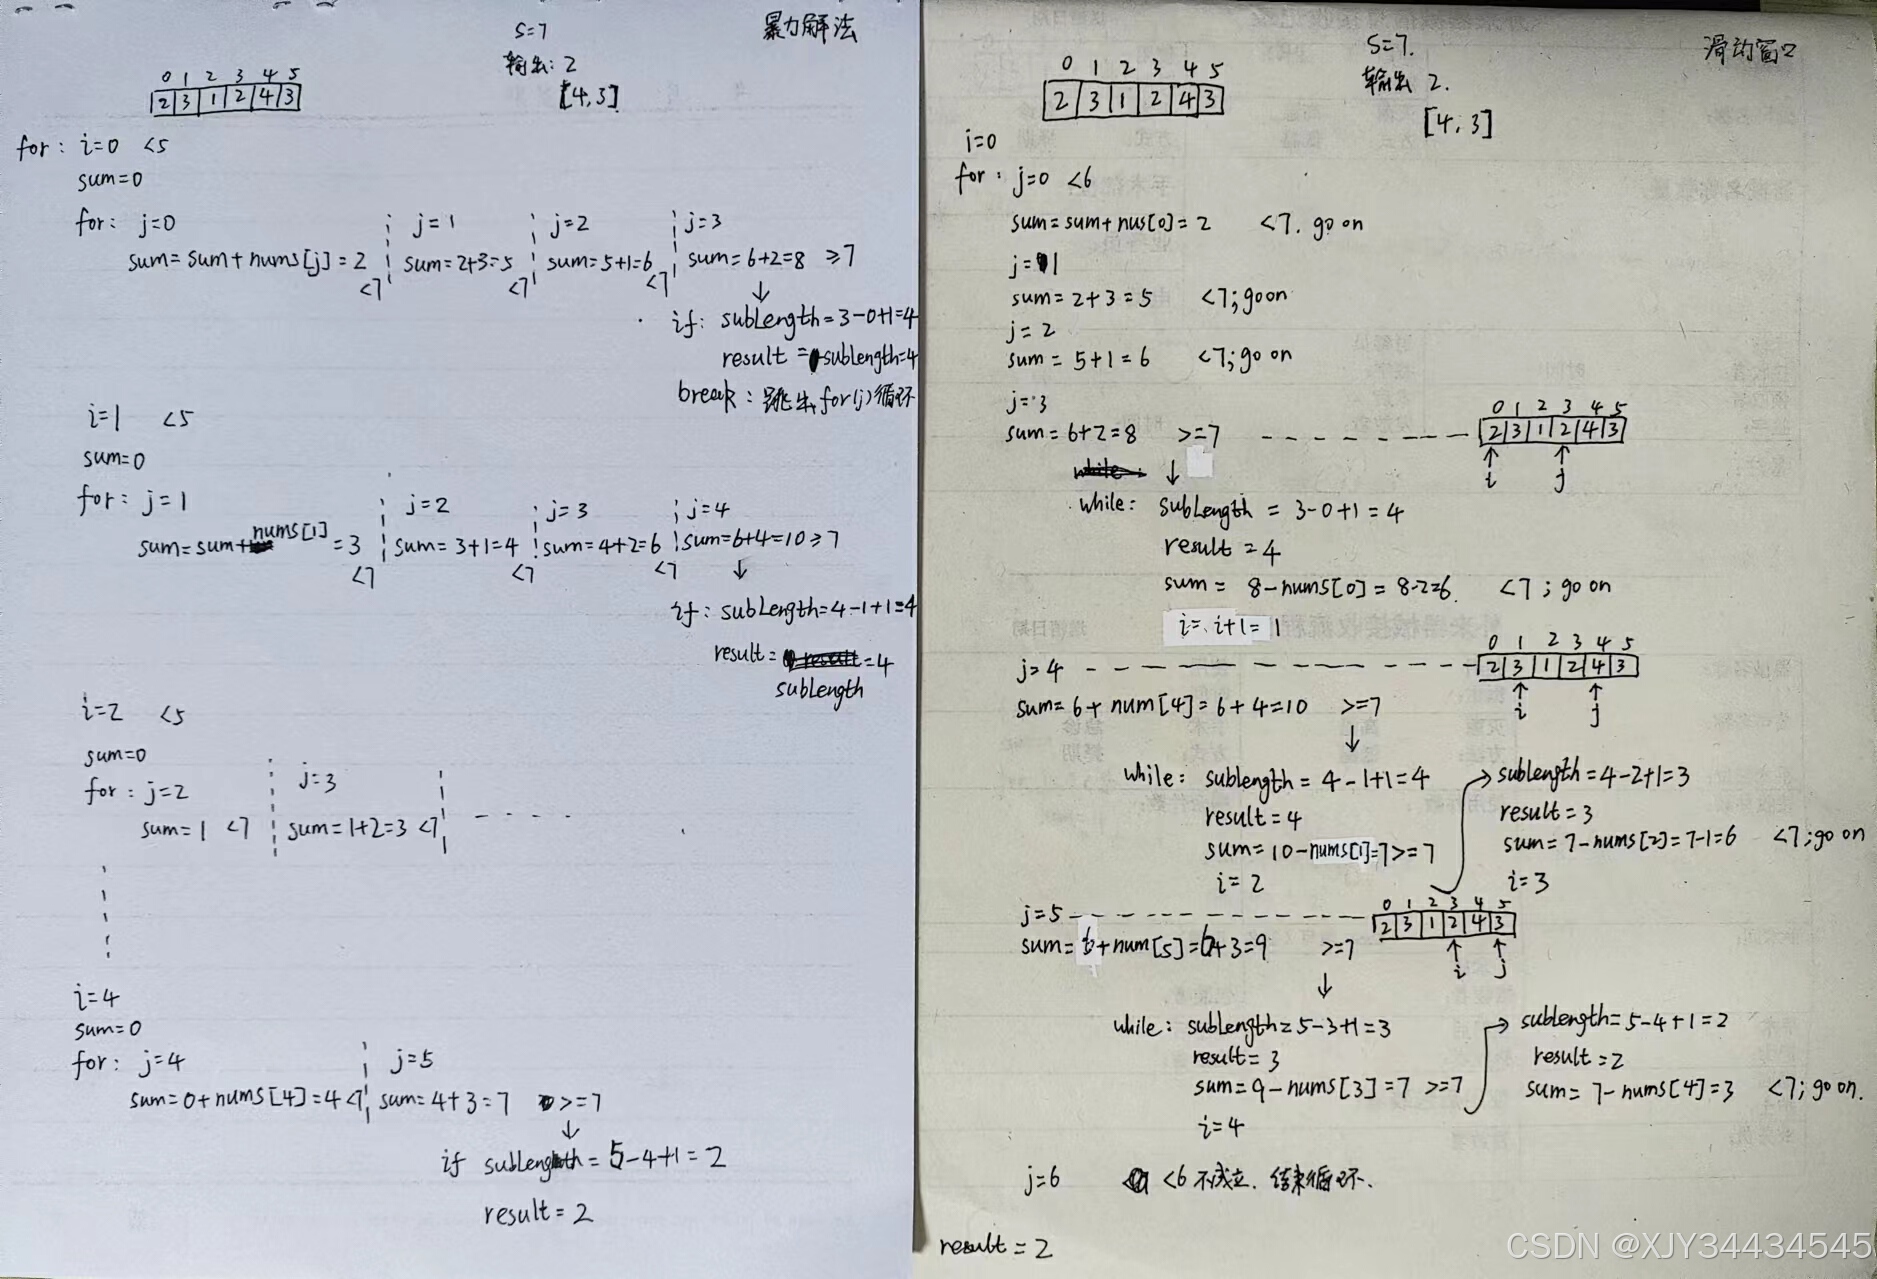 S=7
暴力解法
输出: 2
[4,3]
0 1 2 3 4 5
2 3 1 2 4 3
for: i=0 <5
sum=0
for: j=0 j=1 j=2 j=3
sum=sum+nums[j]=2 sum=2+3=5 sum=5+1=6 sum=6+2=8 ≥7
<7 <7 <7
↓
if: subLength=3-0+1=4
result=subLength=4
break: 跳出for(j)循环
i=1 <5
sum=0
for: j=1 j=2 j=3 j=4
sum=sum+nums[1]=3 sum=3+1=4 sum=4+2=6 sum=6+4=10≥7
<7 <7 <7
↓
if: subLength=4-1+1=4
result= =4
subLength
i=2 <5
sum=0
for: j=2 j=3
sum=1 <7 sum=1+2=3 <7
i=4
sum=0
for: j=4 j=5
sum=0+nums[4]=4<7 sum=4+3=7 >=7
↓
if subLength=5-4+1=2
result=2
S=7.
滑动窗口
输出 2.
[4,3]
0 1 2 3 4 5
2 3 1 2 4 3
i=0
for: j=0 <6
sum=sum+nus[0]=2 <7. go on
j=1
sum=2+3=5 <7;go on
j=2
sum=5+1=6 <7;go on
j=3
0 1 2 3 4 5
sum=6+2=8 >=7 2 3 1 2 4 3
↓ ↑ ↑
i j
while: subLength=3-0+1=4
result=4
sum=8-nums[0]=8-2=6. <7;go on
i=i+1=1
0 1 2 3 4 5
j=4 2 3 1 2 4 3
↑ ↑
sum=6+num[4]=6+4=10 >=7 i j
↓
while: subLength=4-1+1=4 subLength=4-2+1=3
result=4 result=3
sum=10-nums[1]=7>=7 sum=7-nums[2]=7-1=6 <7;go on
i=2 i=3
0 1 2 3 4 5
j=5 2 3 1 2 4 3
sum=6+num[5]=6+3=9 >=7 ↑ ↑
i j
↓
while: subLength=5-3+1=3 subLength=5-4+1=2
result=3 result=2
sum=9-nums[3]=7 >=7 sum=7-nums[4]=3 <7;go on.
i=4
j=6 <6不成立. 结束循环.
result=2
CSDN @XJY34434545